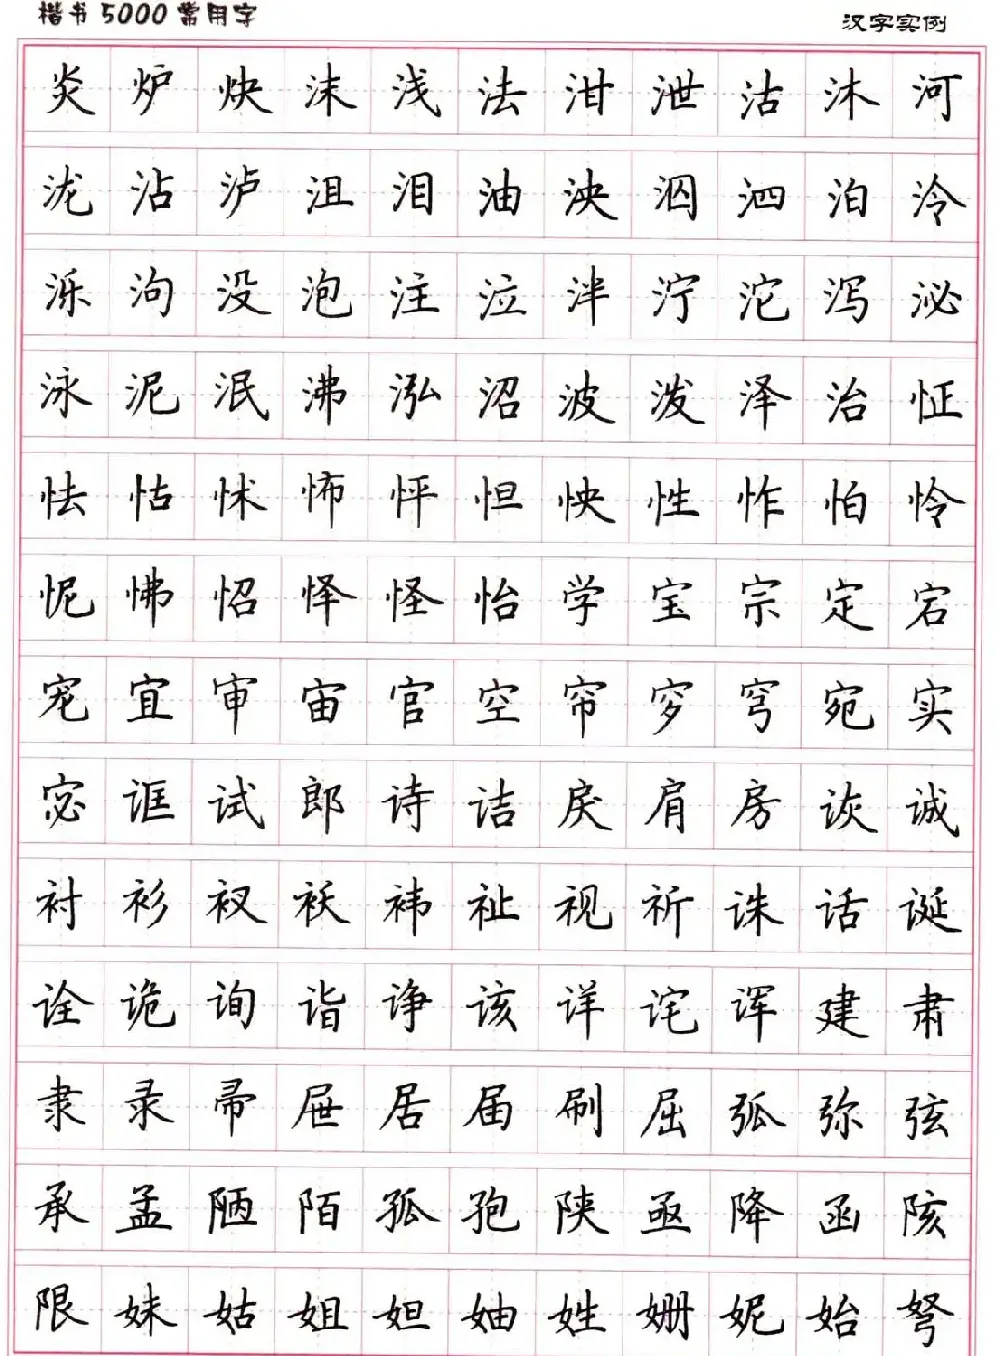 楷书5000常用字 汉字实例
炎炉炔沫浅法泔泄沽沐河
泷沾泸沮泪油泱泅泗泊泠
泺泃没泡注泣泮泞沱泻泌
泳泥泯沸泓沼波泼泽治怔
怯怙怵怖怦怛怏性怍怕怜
怩怫怊怿怪怡学宝宗定宕
宠宜审宙官空帘穸穹宛实
宓诓试郎诗诘戾肩房诙诚
衬衫衩袄祎祉视祈诛话诞
诠诡询诣诤该详诧诨建肃
隶录帚屉居届刷屈弧弥弦
承孟陋陌孤孢陕亟降函陔
限妹姑姐妲妯姓姗妮始弩